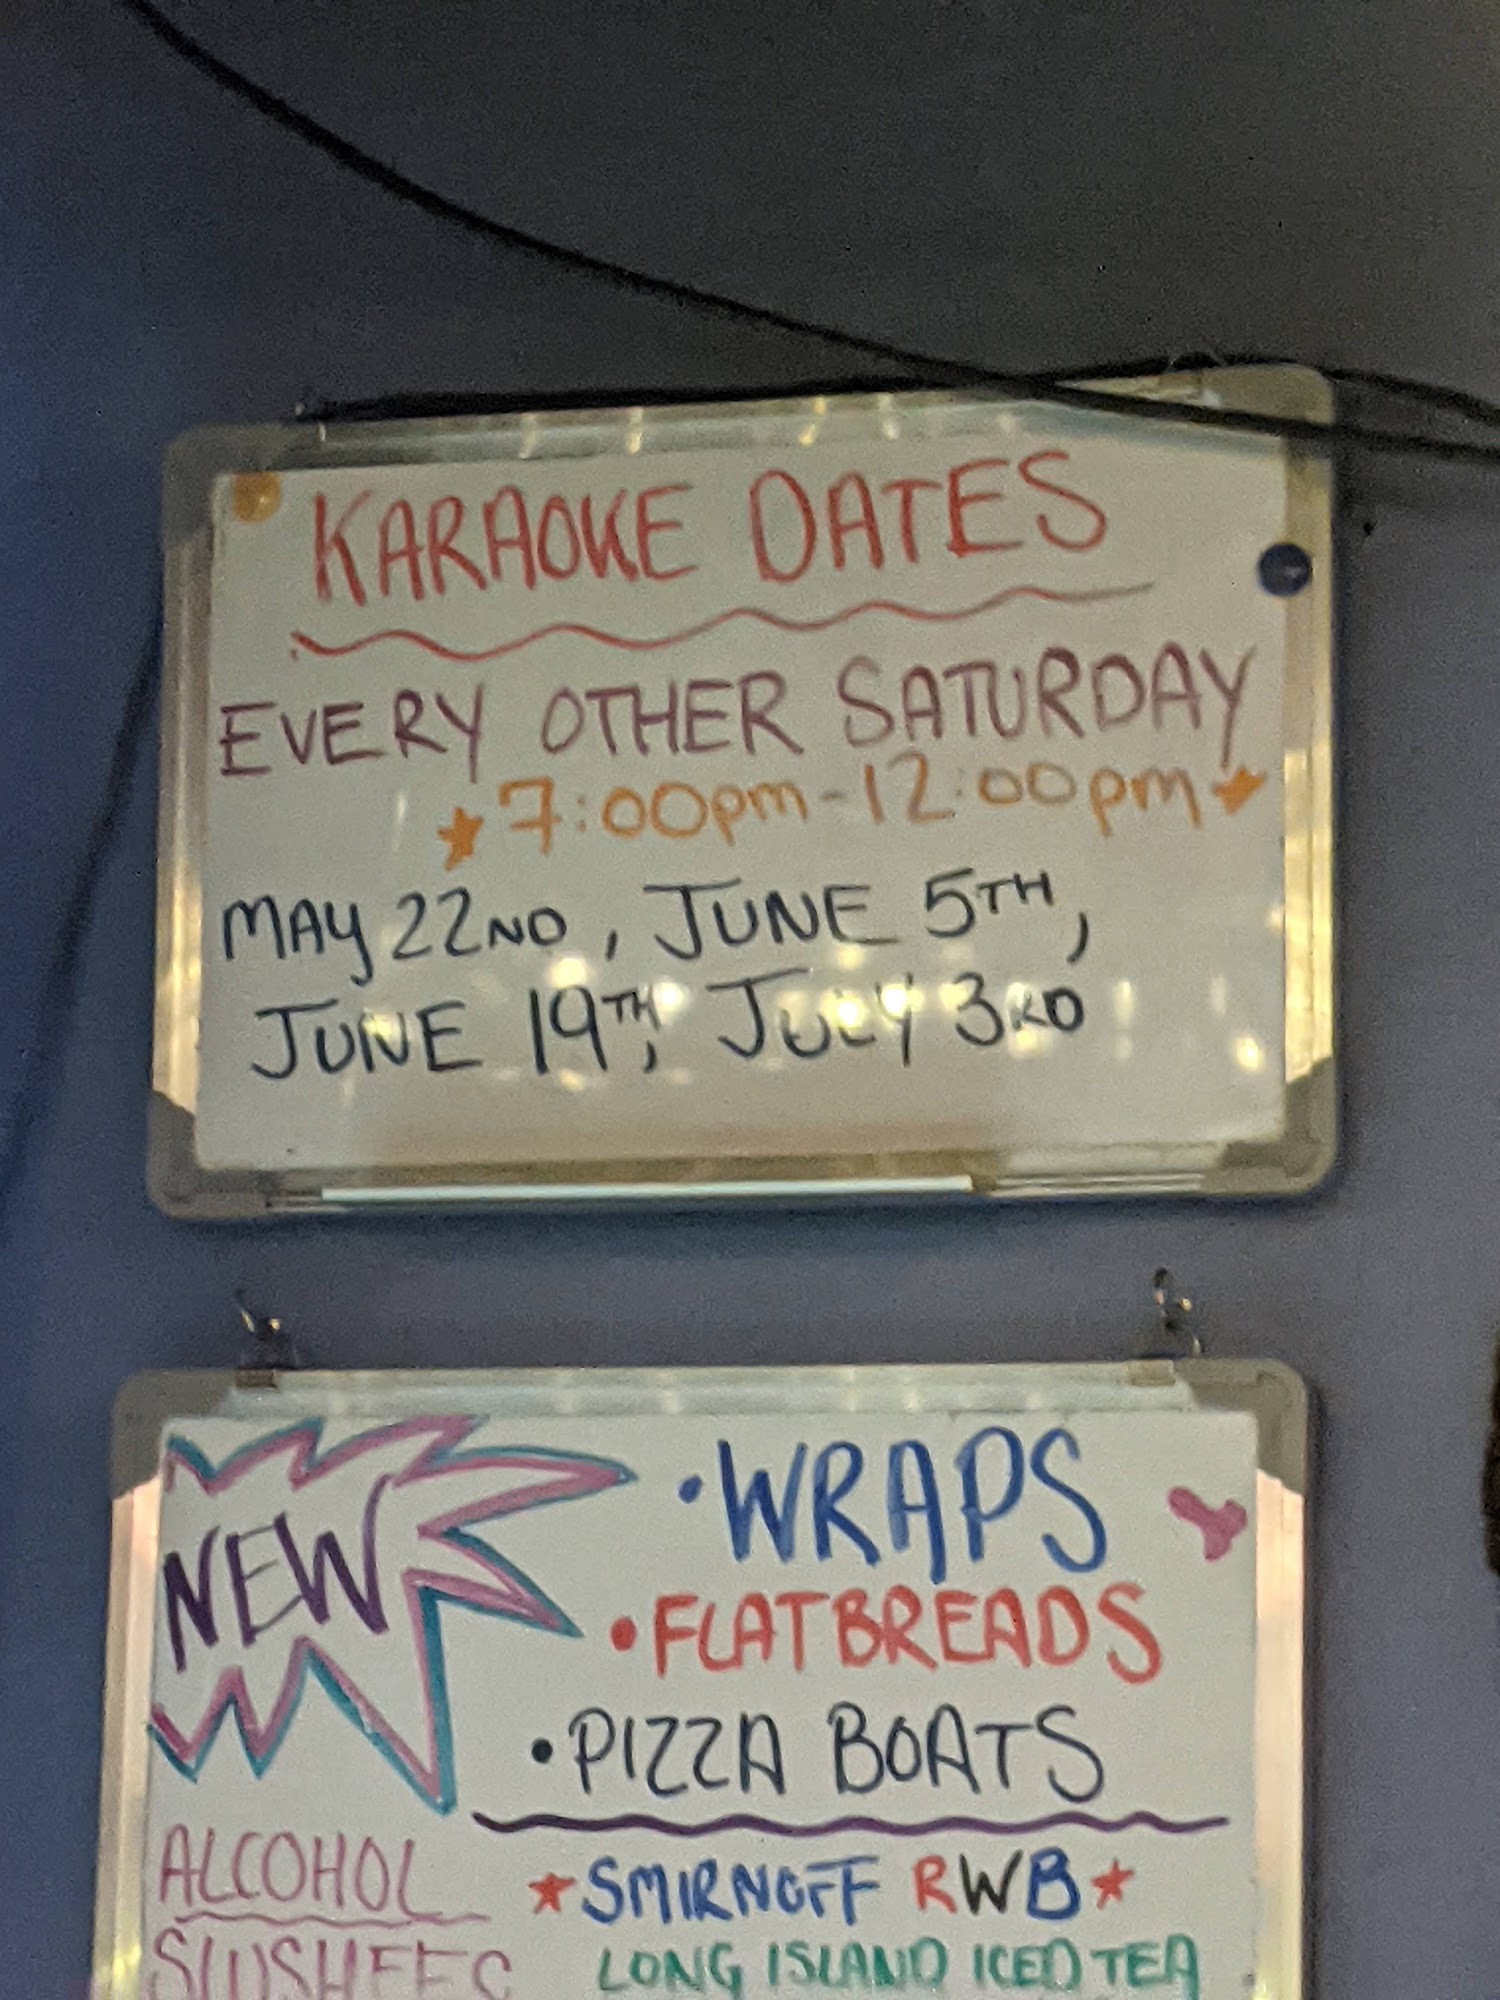 KARAOKE DATES
EVERY OTHER SATURDAY
7:00pm-12:00pm
MAY 22ND, JUNE 5TH,
JUNE 19TH, JULY 3RD
NEW
•WRAPS
•FLATBREADS
•PIZZA BOATS
ALCOHOL
SLUSHEES
SMIRNOFF RWB
LONG ISLAND ICED TEA